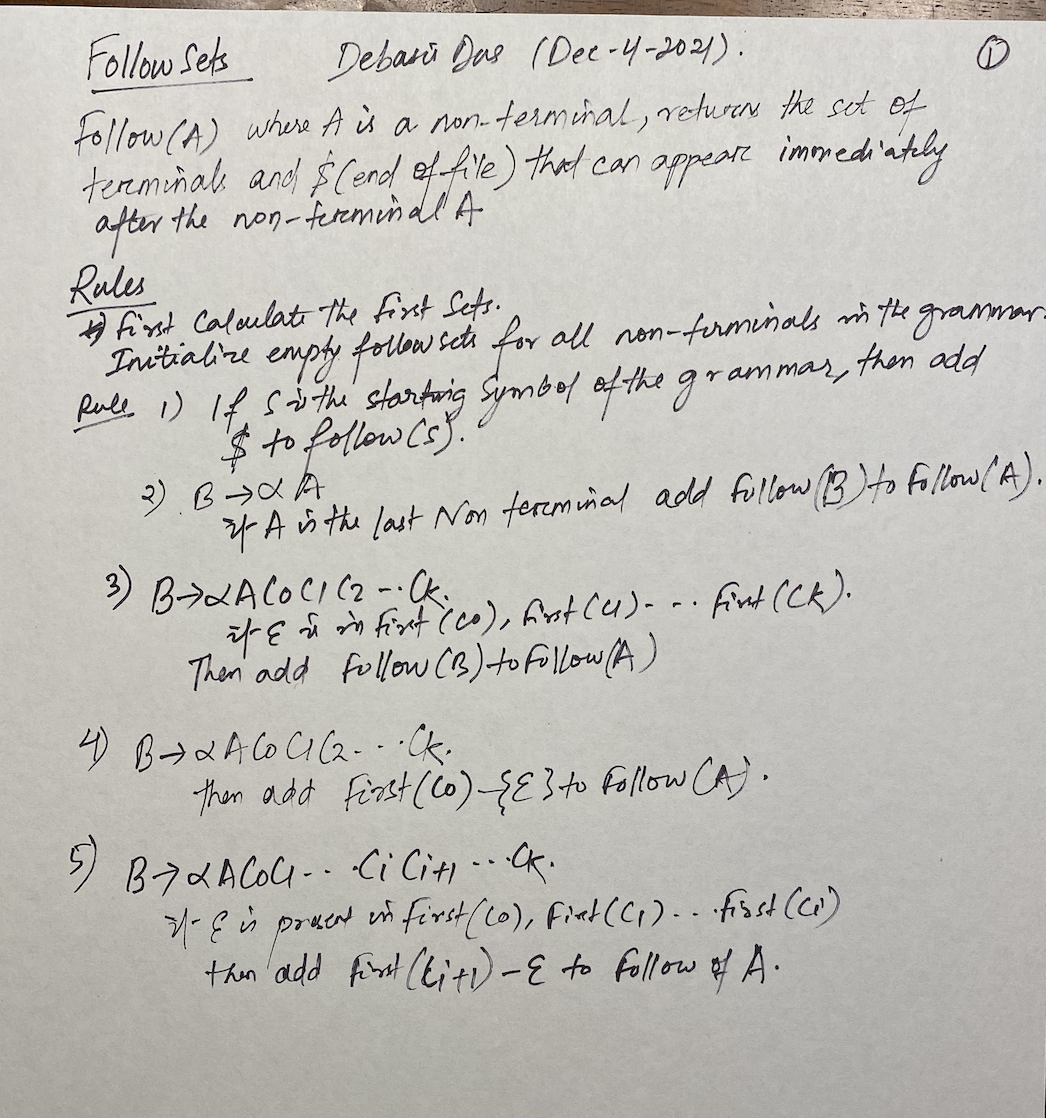 Follow Sets Debasis Das (Dec-4-2021). ①
Follow(A) where A is a non-terminal, returns the set of
terminals and $(end of file) that can appear immediately
after the non-terminal A
Rules
First Calculate the First Sets.
Initialize empty follow sets for all non-terminals in the grammar.
Rule 1) If S is the starting Symbol of the grammar, then add
$ to follow(S).
2) B→αA
if A is the last Non terminal add Follow(B) to Follow(A).
3) B→αAC0C1C2---Ck.
if ε is in First(C0), First(C1)--- First(Ck).
Then add Follow(B) to Follow(A)
4) B→αAC0C1C2---Ck.
then add First(C0)-{ε} to Follow(A).
5) B→αAC0C1---CiCi+1---Ck.
if ε is present in First(C0), First(C1)--- First(Ci)
then add First(Ci+1)-ε to Follow of A.